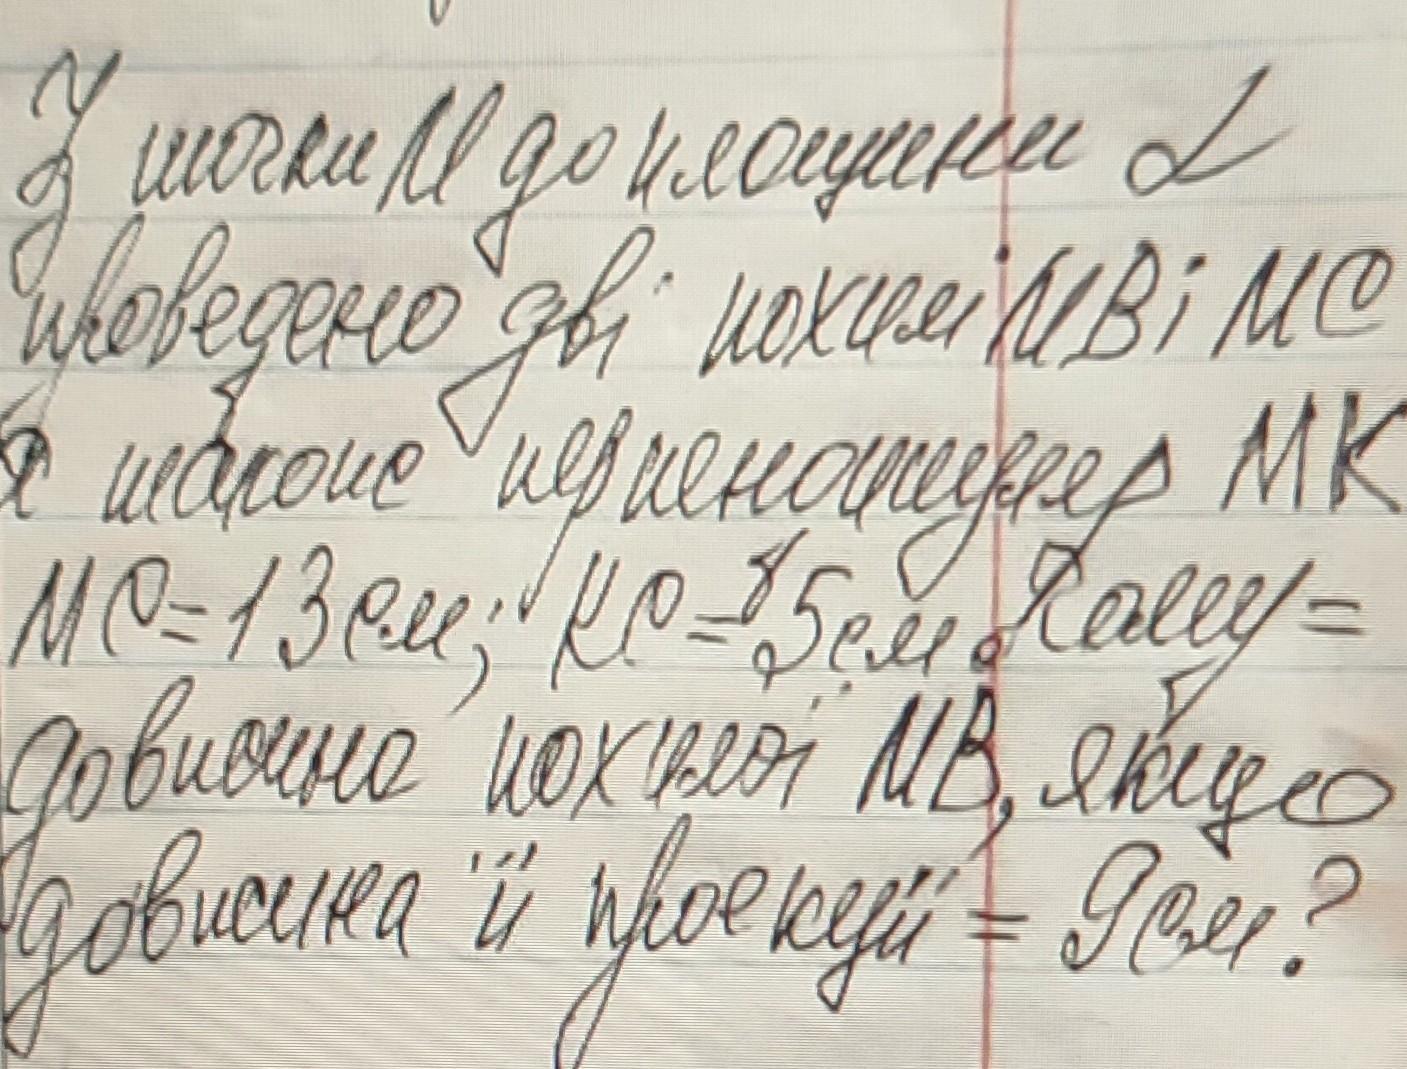 З точки М до площини α
проведено дві похилі МВ і МС
а також перпендикуляр МК
МС = 13 см; КС = 5 см. Чому =
довжина похилої МВ, якщо
довжина її проекції = 9 см?